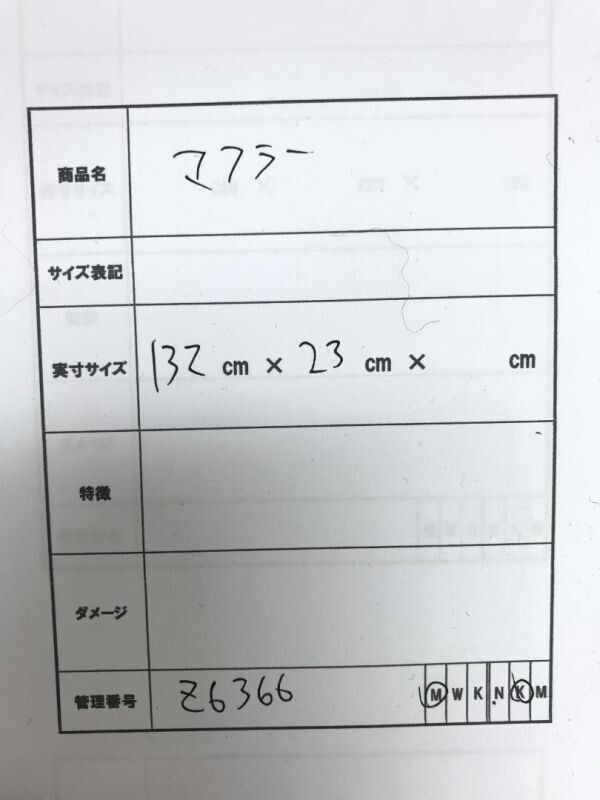 商品名 マフラー
サイズ表記
実寸サイズ 132 cm × 23 cm × cm
特徴
ダメージ
管理番号 Z6366 M W K N K M